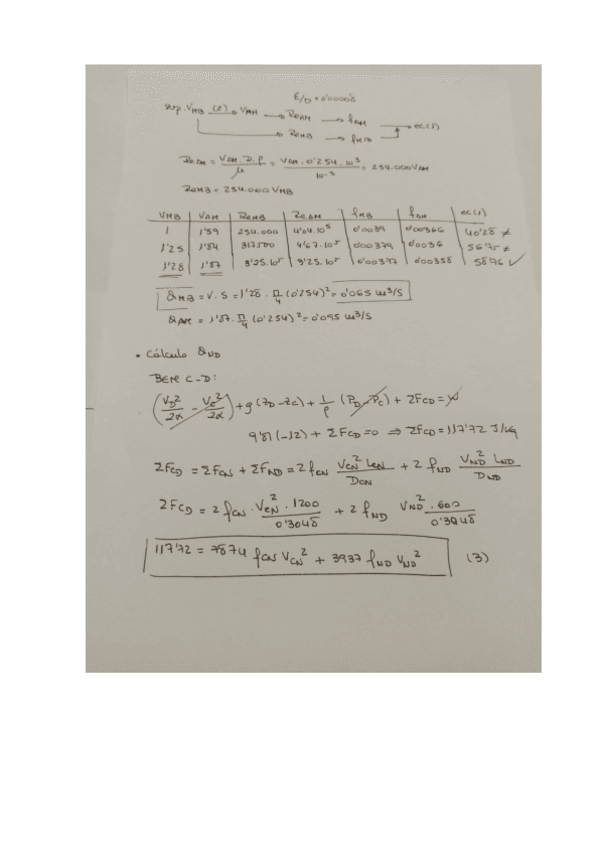 ε/D = 0'00008
sup. V_MB (2) → V_AM → Re_AM → f_AM → ec.(1)
→ Re_MB → f_MB
Re_AM = V_AM · D · ρ / μ = V_AM · 0'254 · 10³ / 10⁻³ = 254.000 V_AM
Re_MB = 254.000 V_MB
V_MB | V_AM | Re_MB | Re_AM | f_MB | f_AM | ec(1)
1 | 1'59 | 254.000 | 4'04.10⁵ | 0'0039 | 0'00366 | 40'28 ≠
1'25 | 1'84 | 317500 | 4'67.10⁵ | 0'00379 | 0'0036 | 56'75 ≠
1'28 | 1'87 | 3'25.10⁵ | 3'25.10⁵ | 0'00377 | 0'00358 | 58'76 ✓
Q_MB = V · S = 1'28 · π/4 (0'254)² = 0'065 m³/S
Q_AM = 1'87 · π/4 (0'254)² = 0'095 m³/S
• Cálculo Q_ND
BEM C-D:
(V_D²/2α - V_C²/2α) + g (z_D - z_C) + 1/ρ (P_D - P_C) + ΣF_CD = W
9'81 (-12) + ΣF_CD = 0 ⇒ ΣF_CD = 117'72 J/kg
ΣF_CD = ΣF_CN + ΣF_ND = 2 f_CN V_CN² L_CN / D_CN + 2 f_ND V_ND² L_ND / D_ND
ΣF_CD = 2 f_CN · V_CN² · 1200 / 0'3048 + 2 f_ND V_ND² · 600 / 0'3048
117'72 = 7874 f_CN V_CN² + 3937 f_ND V_ND² (3)